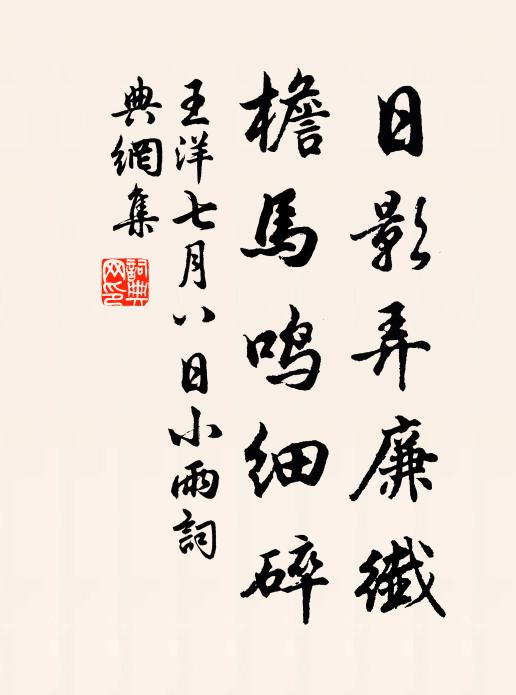 日影弄廉纖
檐馬鳴細碎
王洋七月八日小雨詞
典網集
詞典網印